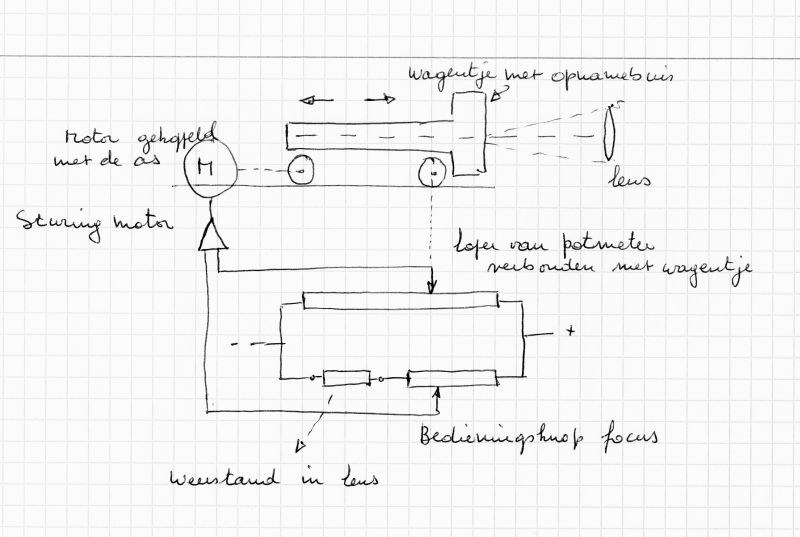 wagentje met opnamebuis
Motor gekoppeld
met de as
M
lens
Sturing motor
loper van potmeter
verbonden met wagentje
- +
Bedieningsknop focus
Weerstand in lens